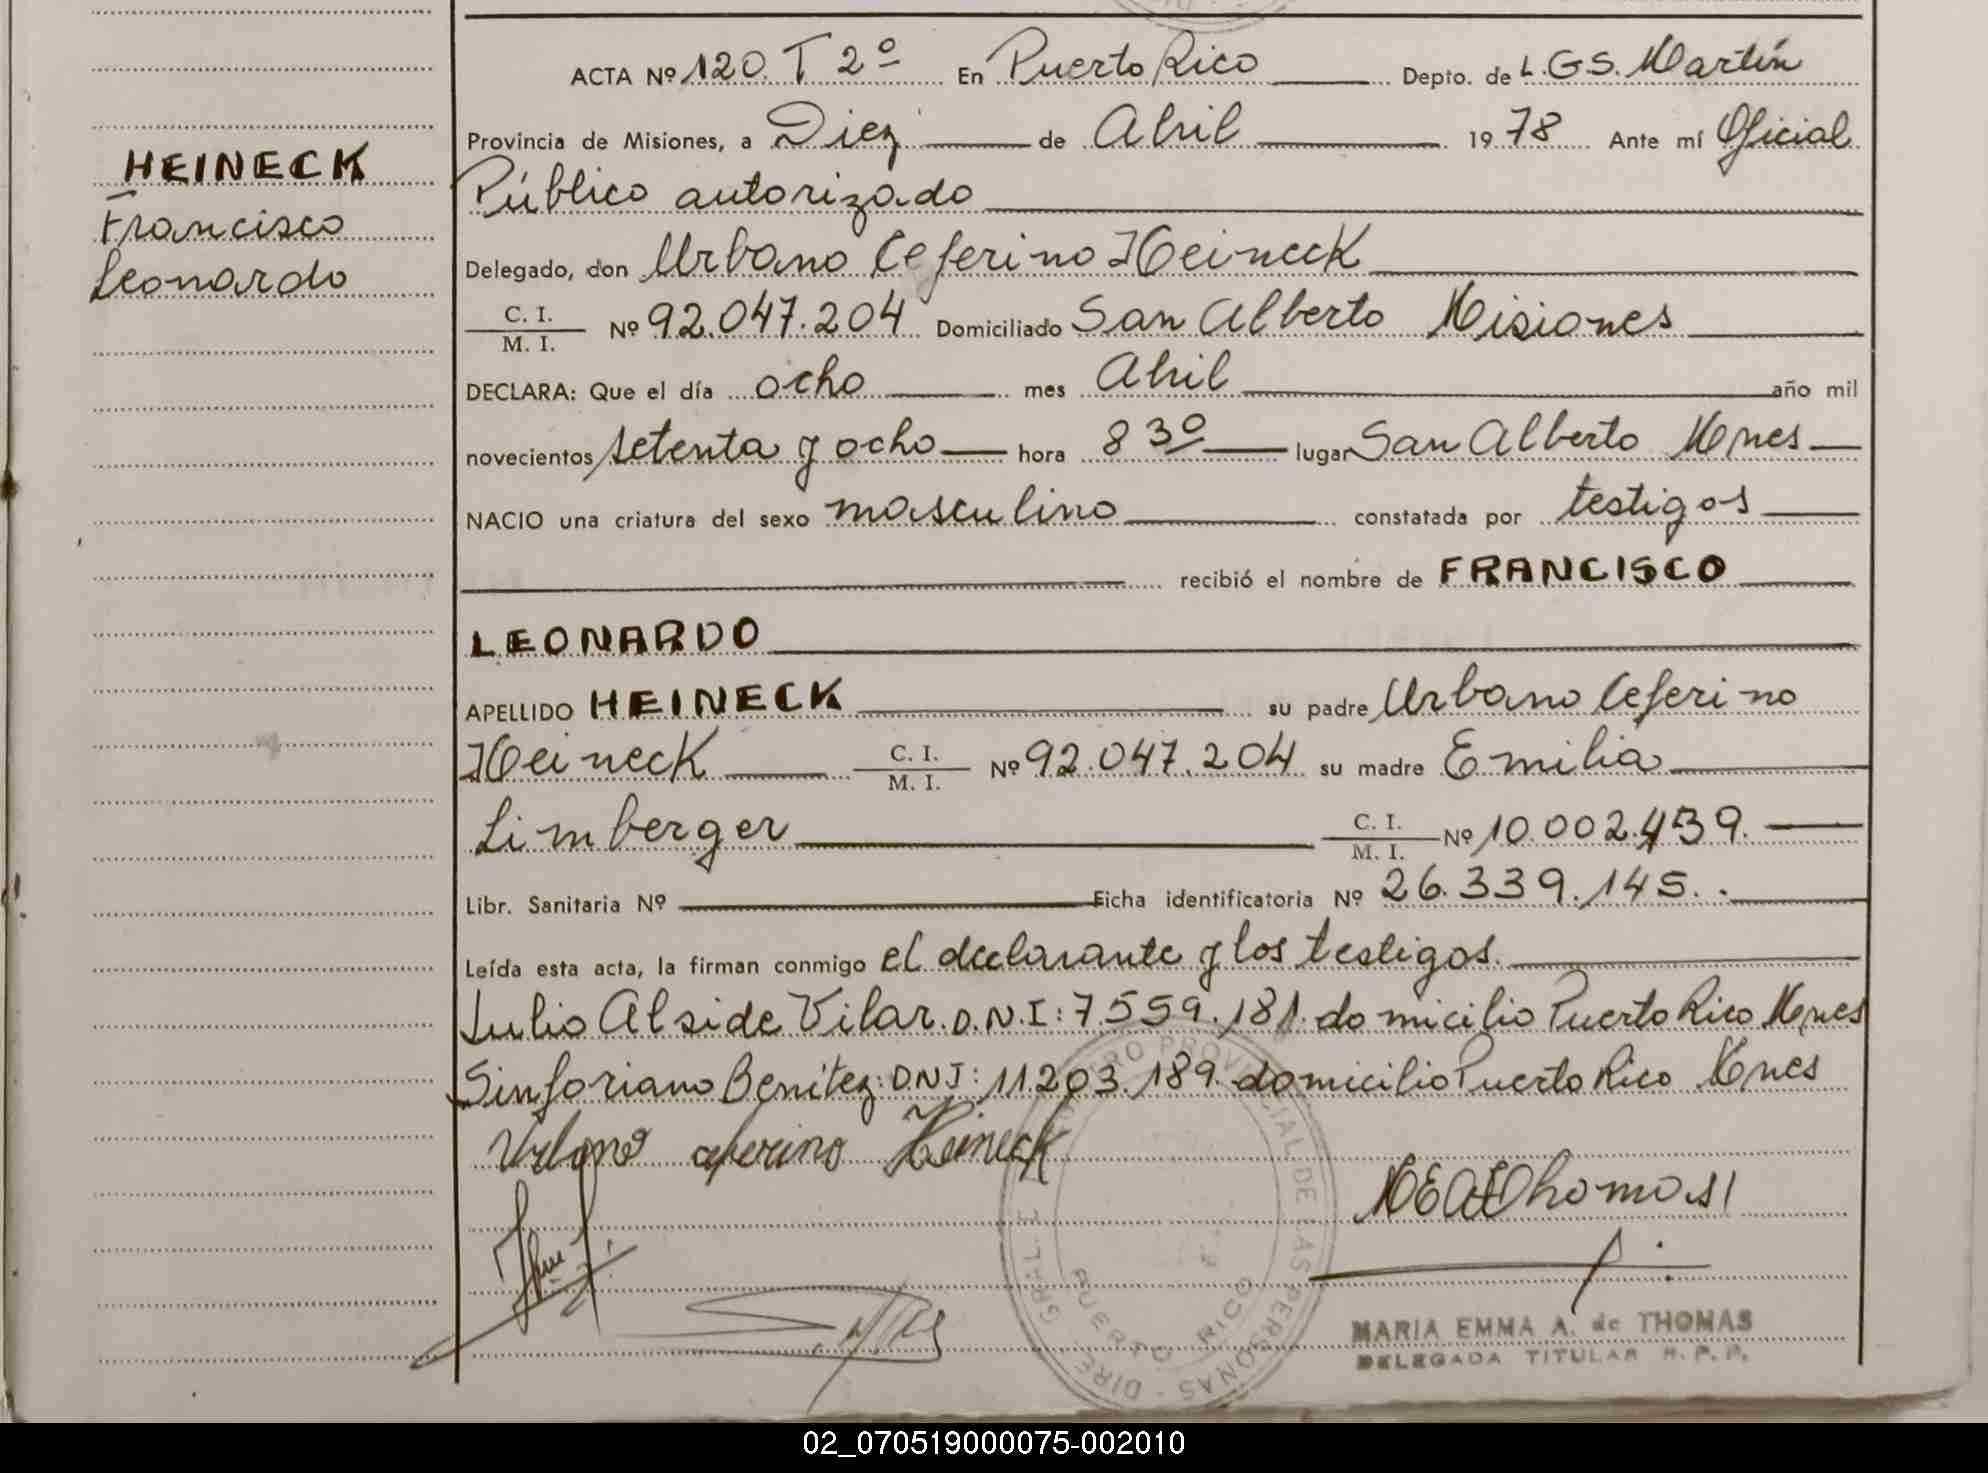 HEINECK
Francisco
Leonardo
ACTA Nº 120. T 2º En Puerto Rico Depto. de L.G.S. Martín
Provincia de Misiones, a Diez de Abril 1978 Ante mí Oficial
Público autorizado
Delegado, don Urbano Ceferino Heineck
C. I.
M. I. Nº 92.047.204 Domiciliado San Alberto Misiones
DECLARA: Que el día ocho mes Abril año mil
novecientos setenta y ocho hora 8 30 lugar San Alberto Mnes
NACIO una criatura del sexo masculino constatada por testigos
recibió el nombre de FRANCISCO
LEONARDO
APELLIDO HEINECK su padre Urbano Ceferino
Heineck C. I. M. I. Nº 92.047.204 su madre Emilia
Limberger C. I. M. I. Nº 10.002.439.
Libr. Sanitaria Nº Ficha identificatoria Nº 26.339.145.
Leída esta acta, la firman conmigo el declarante y los testigos.
Julio Alside Vilar. D.N.I: 7.559.181. domicilio Puerto Rico Mnes
Sinforiano Benítez: DNI: 11.203.189. domicilio Puerto Rico Mnes
Urbano ceferino Heineck
MEAThomas
REGISTRO PROVINCIAL DE LAS PERSONAS - DIREC. GRAL.
PUERTO RICO
MARIA EMMA A. de THOMAS
DELEGADA TITULAR R. P. P.
02_070519000075-002010